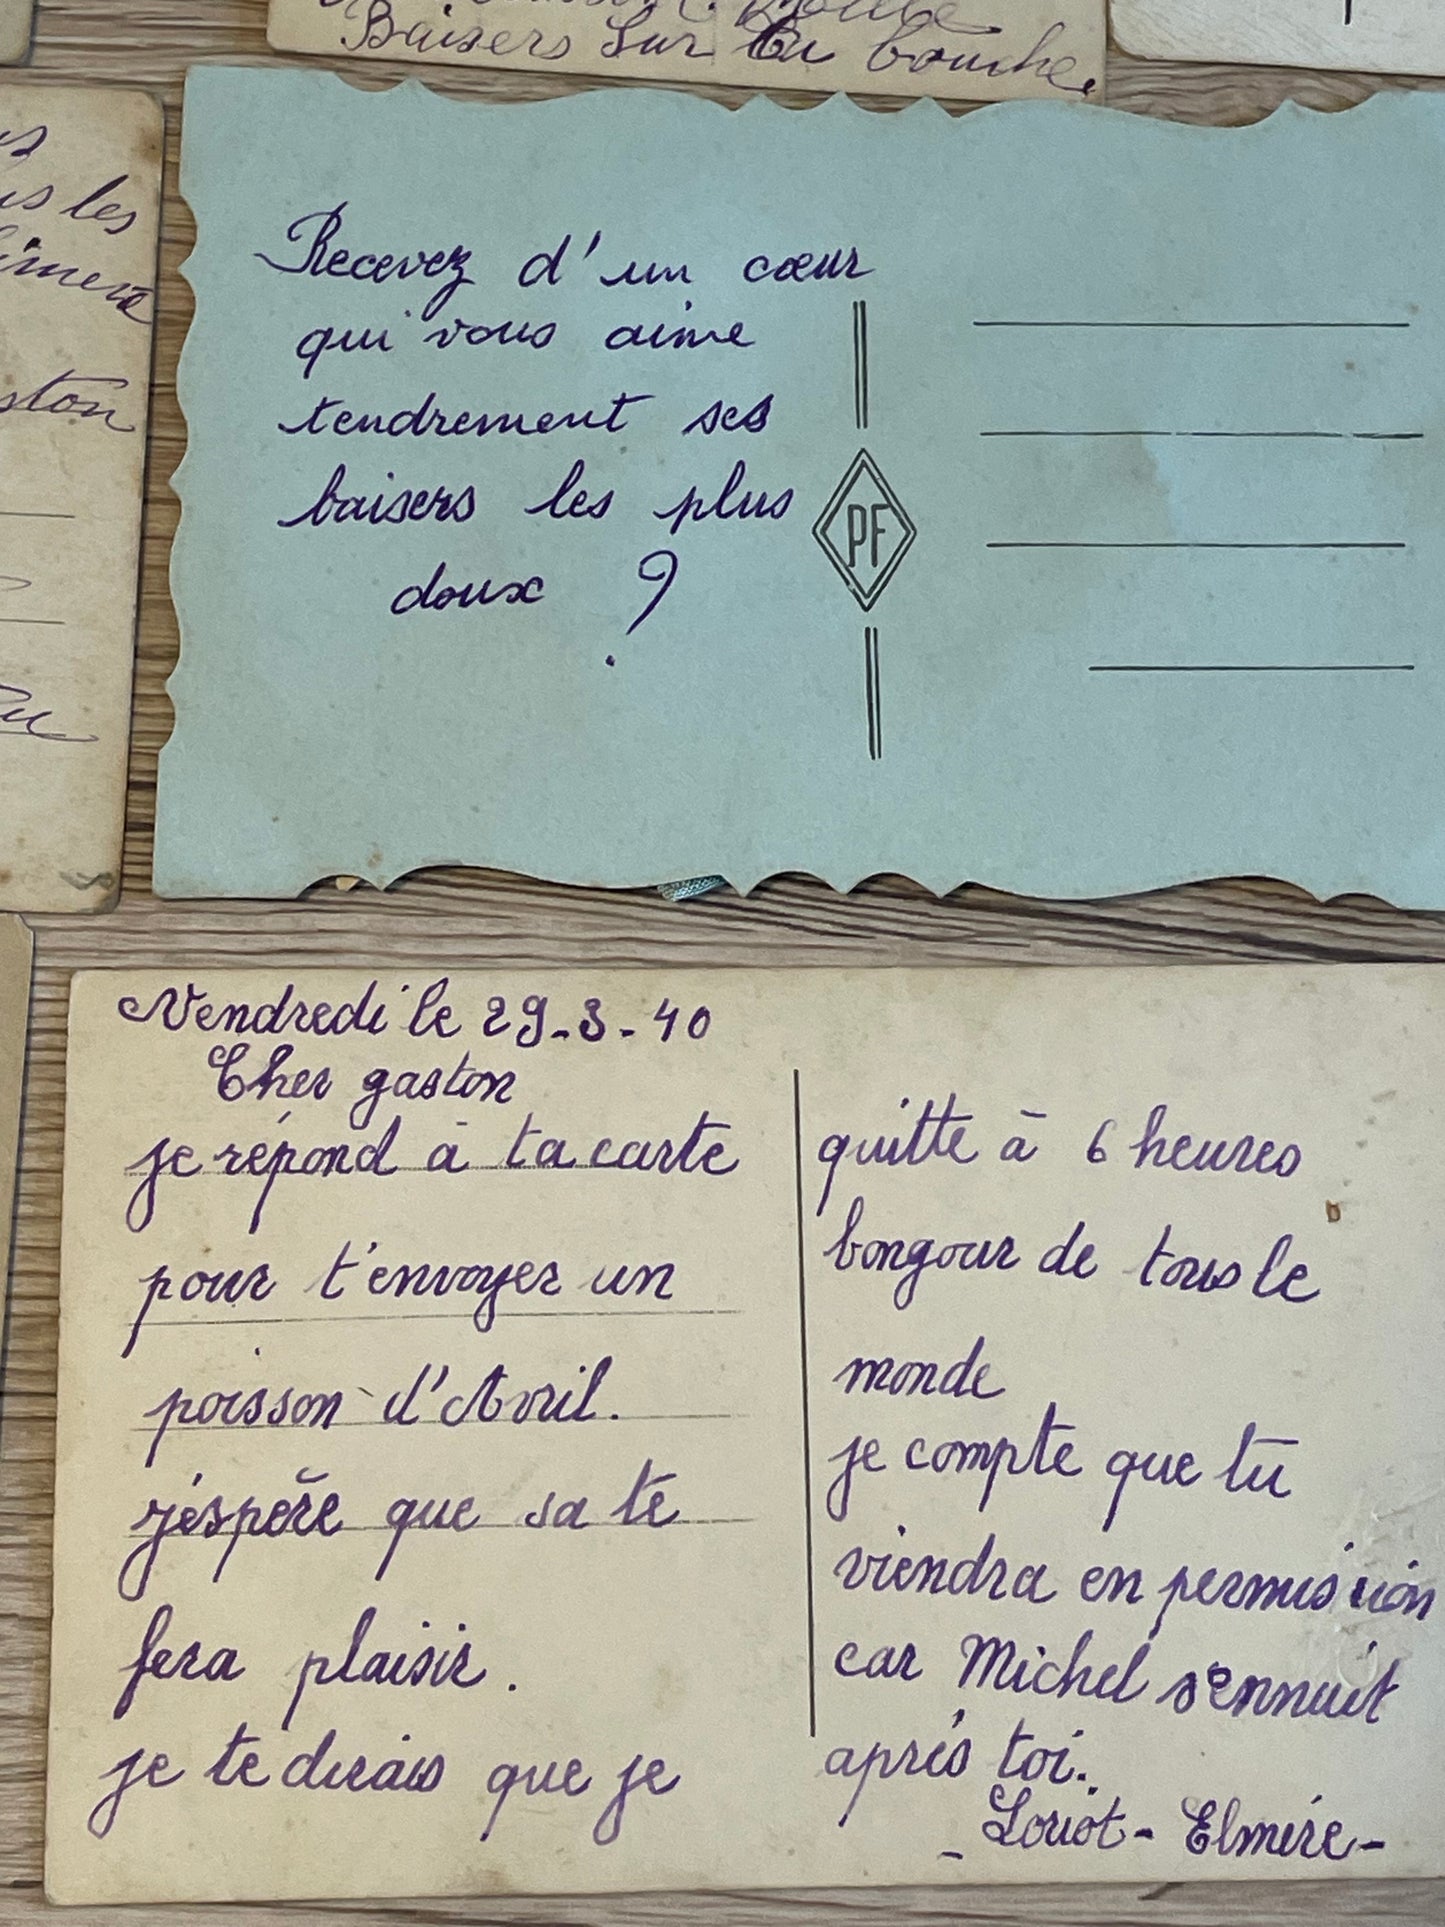 Baisers Sur ta bouche.
les
ston
Recevez d'un cœur
qui vous aime
tendrement ses
baisers les plus
doux ?
PF
Vendredi le 29-3-40
Cher gaston
je répond à ta carte
pour t'envoyer un
poisson d'Avril.
j'éspère que sa te
fera plaisir.
je te dirais que je
quitte à 6 heures
bongour de tous le
monde
je compte que tu
viendra en permission
car Michel s'ennuit
après toi.
- Loriot - Elmire -